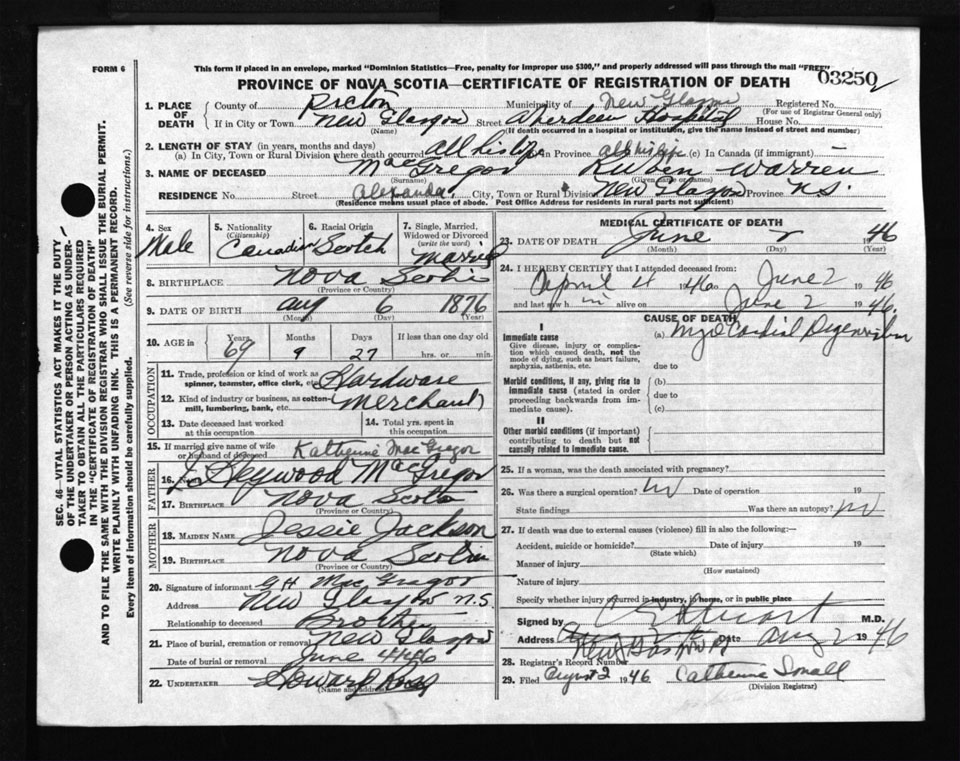 FORM 6
This form if placed in an envelope, marked "Dominion Statistics—Free, penalty for improper use $300," and properly addressed will pass through the mail "FREE"
03250
PROVINCE OF NOVA SCOTIA—CERTIFICATE OF REGISTRATION OF DEATH
1. PLACE OF DEATH County of Pictou Municipality of New Glasgow Registered No.
(For use of Registrar General only)
If in City or Town New Glasgow Street Aberdeen Hospital House No.
(Name) (If death occurred in a hospital or institution, give the name instead of street and number)
2. LENGTH OF STAY (in years, months and days)
(a) In City, Town or Rural Division where death occurred all his life In Province all his life (c) In Canada (if immigrant)
3. NAME OF DECEASED MacGregor Ruben Warren
(Surname) (Given name or names)
RESIDENCE No. Street City, Town or Rural Division New Glasgow Province N.S.
(Residence means usual place of abode. Post Office Address for residents in rural parts not sufficient)
4. Sex Male
5. Nationality (Citizenship) Canadian
6. Racial Origin Scotch
7. Single, Married, Widowed or Divorced (write the word) Married
8. BIRTHPLACE Nova Scotia
(Province or Country)
9. DATE OF BIRTH Aug 6 1876
(Month) (Day) (Year)
10. AGE in Years Months Days If less than one day old
69 9 27 hrs. or min.
OCCUPATION
11. Trade, profession or kind of work as spinner, teamster, office clerk, etc. Hardware
12. Kind of industry or business, as cotton-mill, lumbering, bank, etc. Merchant
13. Date deceased last worked at this occupation
14. Total yrs. spent in this occupation
15. If married give name of wife or husband of deceased Katherine MacGregor
FATHER
16. Name Heywood MacGregor
17. BIRTHPLACE Nova Scotia
(Province or Country)
MOTHER
18. MAIDEN NAME Jessie Jackson
19. BIRTHPLACE Nova Scotia
(Province or Country)
20. Signature of informant G H MacGregor
Address New Glasgow N.S.
Relationship to deceased Brother
21. Place of burial, cremation or removal New Glasgow
Date of burial or removal June 4 46
22. UNDERTAKER
(Name and address)
MEDICAL CERTIFICATE OF DEATH
23. DATE OF DEATH June 2 1946
(Month) (Day) (Year)
24. I HEREBY CERTIFY that I attended deceased from:
April 4 1946 to June 2 1946
and last saw him alive on June 2 1946.
CAUSE OF DEATH
I
Immediate cause (a) Myocardial
Give disease, injury or complication which caused death, not the mode of dying, such as heart failure, asphyxia, asthenia, etc.
due to
Morbid conditions, if any, giving rise to immediate cause (stated in order proceeding backwards from immediate cause).
(b)
due to
(c)
II
Other morbid conditions (if important) contributing to death but not causally related to immediate cause.
25. If a woman, was the death associated with pregnancy?
26. Was there a surgical operation? no Date of operation 19
State findings Was there an autopsy? no
27. If death was due to external causes (violence) fill in also the following:—
Accident, suicide or homicide? Date of injury 19
(State which)
Manner of injury
(How sustained)
Nature of injury
Specify whether injury occurred in industry, in home, or in public place
Signed by Stuart M.D.
Address New Glasgow Date Aug 2 1946
28. Registrar's Record Number
29. Filed August 2 1946 Catherine Small
(Division Registrar)
SEC. 46—VITAL STATISTICS ACT MAKES IT THE DUTY OF THE UNDERTAKER OR PERSON ACTING AS UNDERTAKER TO OBTAIN ALL THE PARTICULARS REQUIRED IN THE "CERTIFICATE OF REGISTRATION OF DEATH" AND TO FILE THE SAME WITH THE DIVISION REGISTRAR WHO SHALL ISSUE THE BURIAL PERMIT.
WRITE PLAINLY WITH UNFADING INK. THIS IS A PERMANENT RECORD.
Every item of information should be carefully supplied. (See reverse side for instructions.)